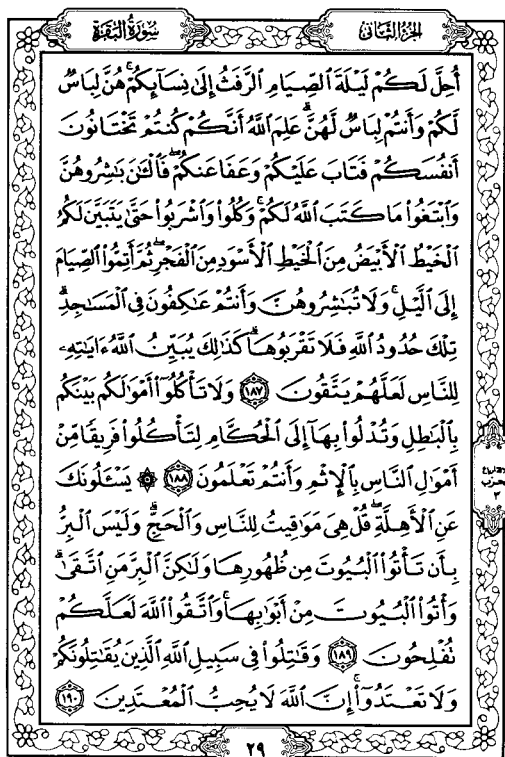 سُورَةُ البَقَرَةِ
الجُزْءُ الثَّانِي
أُحِلَّ لَكُمْ لَيْلَةَ ٱلصِّيَامِ ٱلرَّفَثُ إِلَىٰ نِسَآئِكُمْ ۚ هُنَّ لِبَاسٌ
لَّكُمْ وَأَنتُمْ لِبَاسٌ لَّهُنَّ ۗ عَلِمَ ٱللَّهُ أَنَّكُمْ كُنتُمْ تَخْتَانُونَ
أَنفُسَكُمْ فَتَابَ عَلَيْكُمْ وَعَفَا عَنكُمْ ۖ فَٱلْـَٰٔنَ بَـٰشِرُوهُنَّ
وَٱبْتَغُوا۟ مَا كَتَبَ ٱللَّهُ لَكُمْ ۚ وَكُلُوا۟ وَٱشْرَبُوا۟ حَتَّىٰ يَتَبَيَّنَ لَكُمُ
ٱلْخَيْطُ ٱلْأَبْيَضُ مِنَ ٱلْخَيْطِ ٱلْأَسْوَدِ مِنَ ٱلْفَجْرِ ۖ ثُمَّ أَتِمُّوا۟ ٱلصِّيَامَ
إِلَى ٱلَّيْلِ ۚ وَلَا تُبَـٰشِرُوهُنَّ وَأَنتُمْ عَـٰكِفُونَ فِى ٱلْمَسَـٰجِدِ ۗ
تِلْكَ حُدُودُ ٱللَّهِ فَلَا تَقْرَبُوهَا ۗ كَذَٰلِكَ يُبَيِّنُ ٱللَّهُ ءَايَـٰتِهِۦ
لِلنَّاسِ لَعَلَّهُمْ يَتَّقُونَ ١٨٧ وَلَا تَأْكُلُوٓا۟ أَمْوَٰلَكُم بَيْنَكُم
بِٱلْبَـٰطِلِ وَتُدْلُوا۟ بِهَآ إِلَى ٱلْحُكَّامِ لِتَأْكُلُوا۟ فَرِيقًا مِّنْ
أَمْوَٰلِ ٱلنَّاسِ بِٱلْإِثْمِ وَأَنتُمْ تَعْلَمُونَ ١٨٨ ۞ يَسْـَٔلُونَكَ
عَنِ ٱلْأَهِلَّةِ ۖ قُلْ هِىَ مَوَٰقِيتُ لِلنَّاسِ وَٱلْحَجِّ ۗ وَلَيْسَ ٱلْبِرُّ
بِأَن تَأْتُوا۟ ٱلْبُيُوتَ مِن ظُهُورِهَا وَلَـٰكِنَّ ٱلْبِرَّ مَنِ ٱتَّقَىٰ ۗ
وَأْتُوا۟ ٱلْبُيُوتَ مِنْ أَبْوَٰبِهَا ۚ وَٱتَّقُوا۟ ٱللَّهَ لَعَلَّكُمْ
تُفْلِحُونَ ١٨٩ وَقَـٰتِلُوا۟ فِى سَبِيلِ ٱللَّهِ ٱلَّذِينَ يُقَـٰتِلُونَكُمْ
وَلَا تَعْتَدُوٓا۟ ۚ إِنَّ ٱللَّهَ لَا يُحِبُّ ٱلْمُعْتَدِينَ ١٩٠
حزب
٣
٢٩